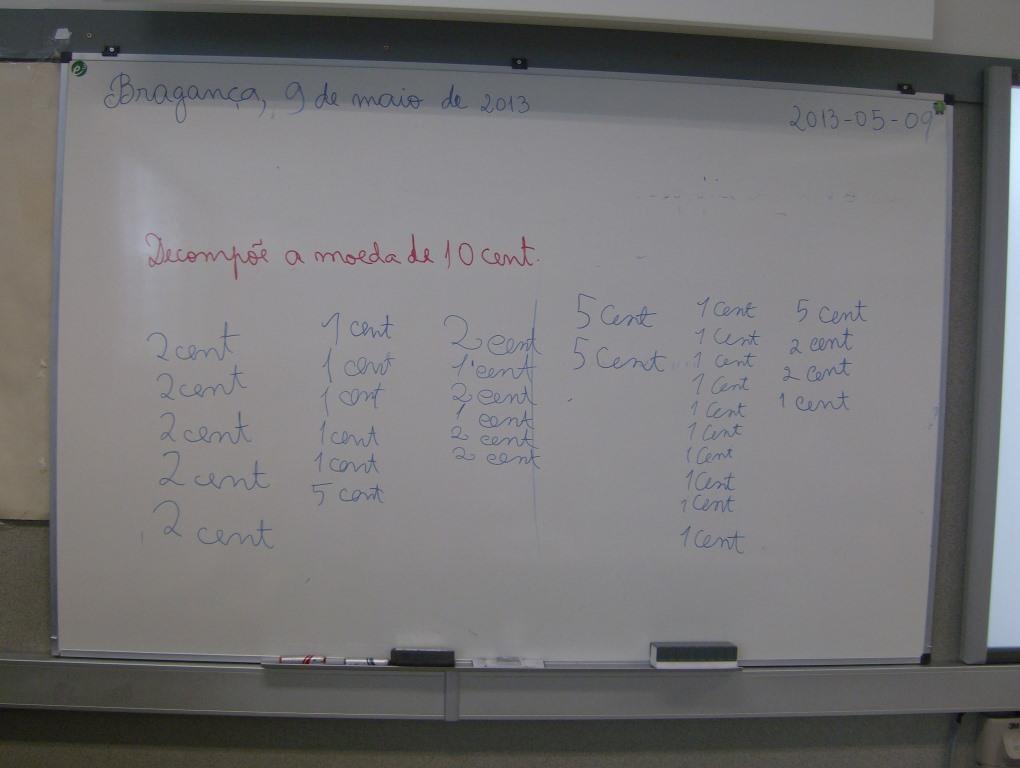 Bragança, 9 de maio de 2013
2013-05-09
Decompõe a moeda de 10 cent.
2 cent
2 cent
2 cent
2 cent
2 cent
1 cent
1 cent
1 cent
1 cent
1 cent
5 cent
2 cent
1 cent
2 cent
1 cent
2 cent
2 cent
5 cent
5 cent
1 cent
1 cent
1 cent
1 cent
1 cent
1 cent
1 cent
1 cent
1 cent
1 cent
5 cent
2 cent
2 cent
1 cent
3M